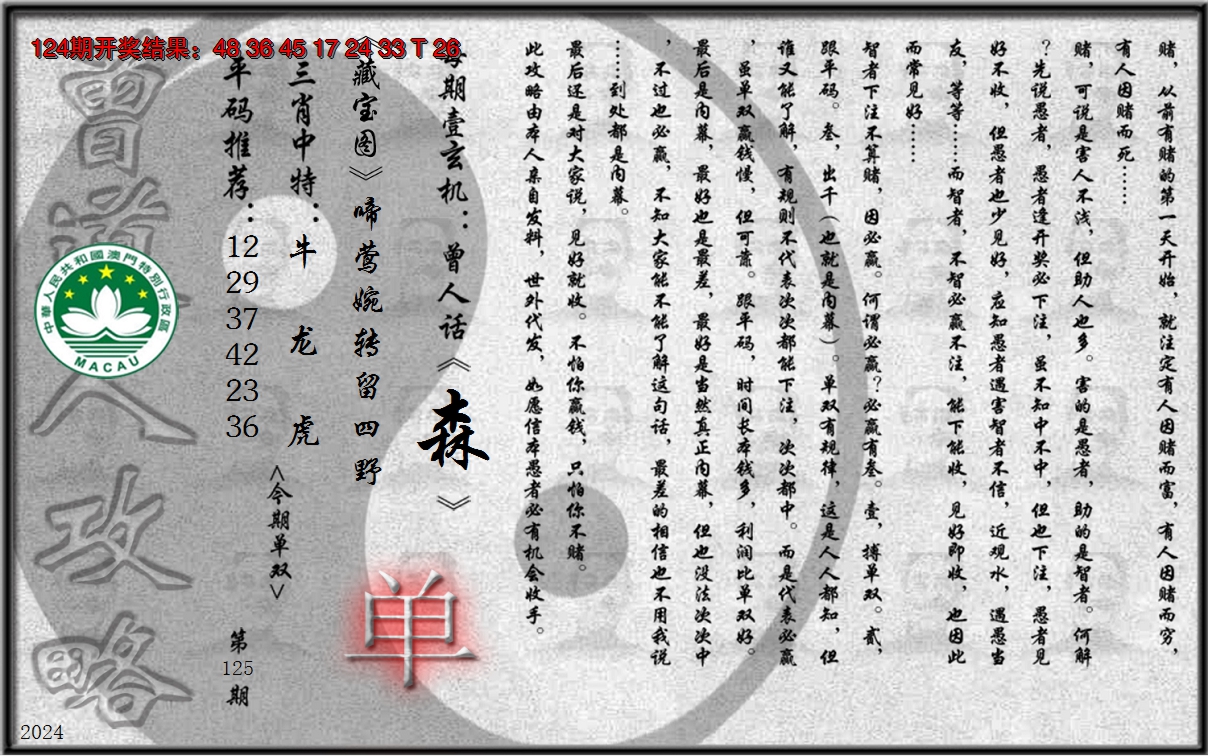 124期开奖结果：48 36 45 17 24 33 T 26
赌，从前有赌的第一天开始，就注定有人因赌而富，有人因赌而穷，
有人因赌而死……
赌，可说是害人不浅，但助人也多。害的是愚者，助的是智者。何解
？先说愚者，愚者逢开奖必下注，虽不知中不中，但也下注，愚者见
好不收，但愚者也少见好，应知愚者遇害智者不信，近观水，遇愚当
友，等等……而智者，不智必赢不注，能下能收，见好即收，也因此
而常见好……
智者下注不算赌，因必赢。何谓必赢？必赢有叁。壹，搏单双。贰，
跟平码。叁，出千（也就是内幕）。单双有规律，这是人人都知，但
谁又能了解，有规则不代表次次都能下注，次次都中。而是代表必赢
，虽单双赢钱慢，但可靠。跟平码，时间长本钱多，利润比单双好。
最后是内幕，最好也是最差，最好是当然真正内幕，但也没法次次中
，不过也必赢，不知大家能不能了解这句话，最差的相信也不用我说
……到处都是内幕。
最后还是对大家说，见好就收。不怕你赢钱，只怕你不赌。
此攻略由本人亲自发料，世外代发，如愿信本愚者必有机会收手。
每期壹玄机：曾人话《森》
《藏宝图》啼莺婉转留四野
单
三肖中特：牛 龙 虎
<今期单双>
平码推荐：12 29 37 42 23 36
第125期
曾道人攻略
中華人民共和國澳門特別行政區
MACAU
2024